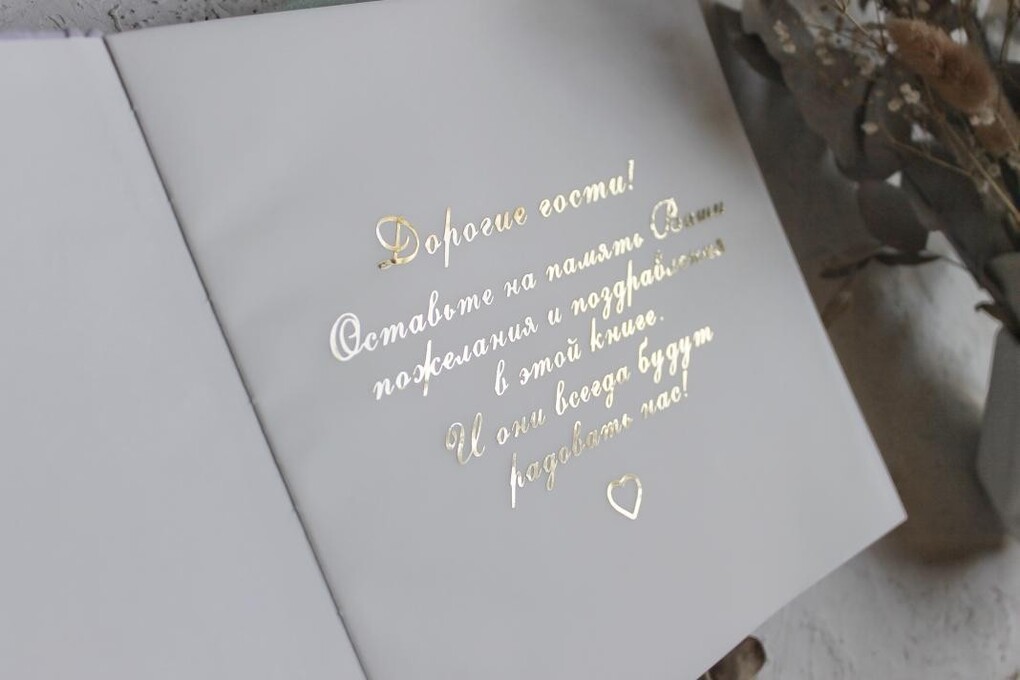 Дорогие гости!
Оставьте на память Ваши
пожелания и поздравления
в этой книге.
И они всегда будут
радовать нас!